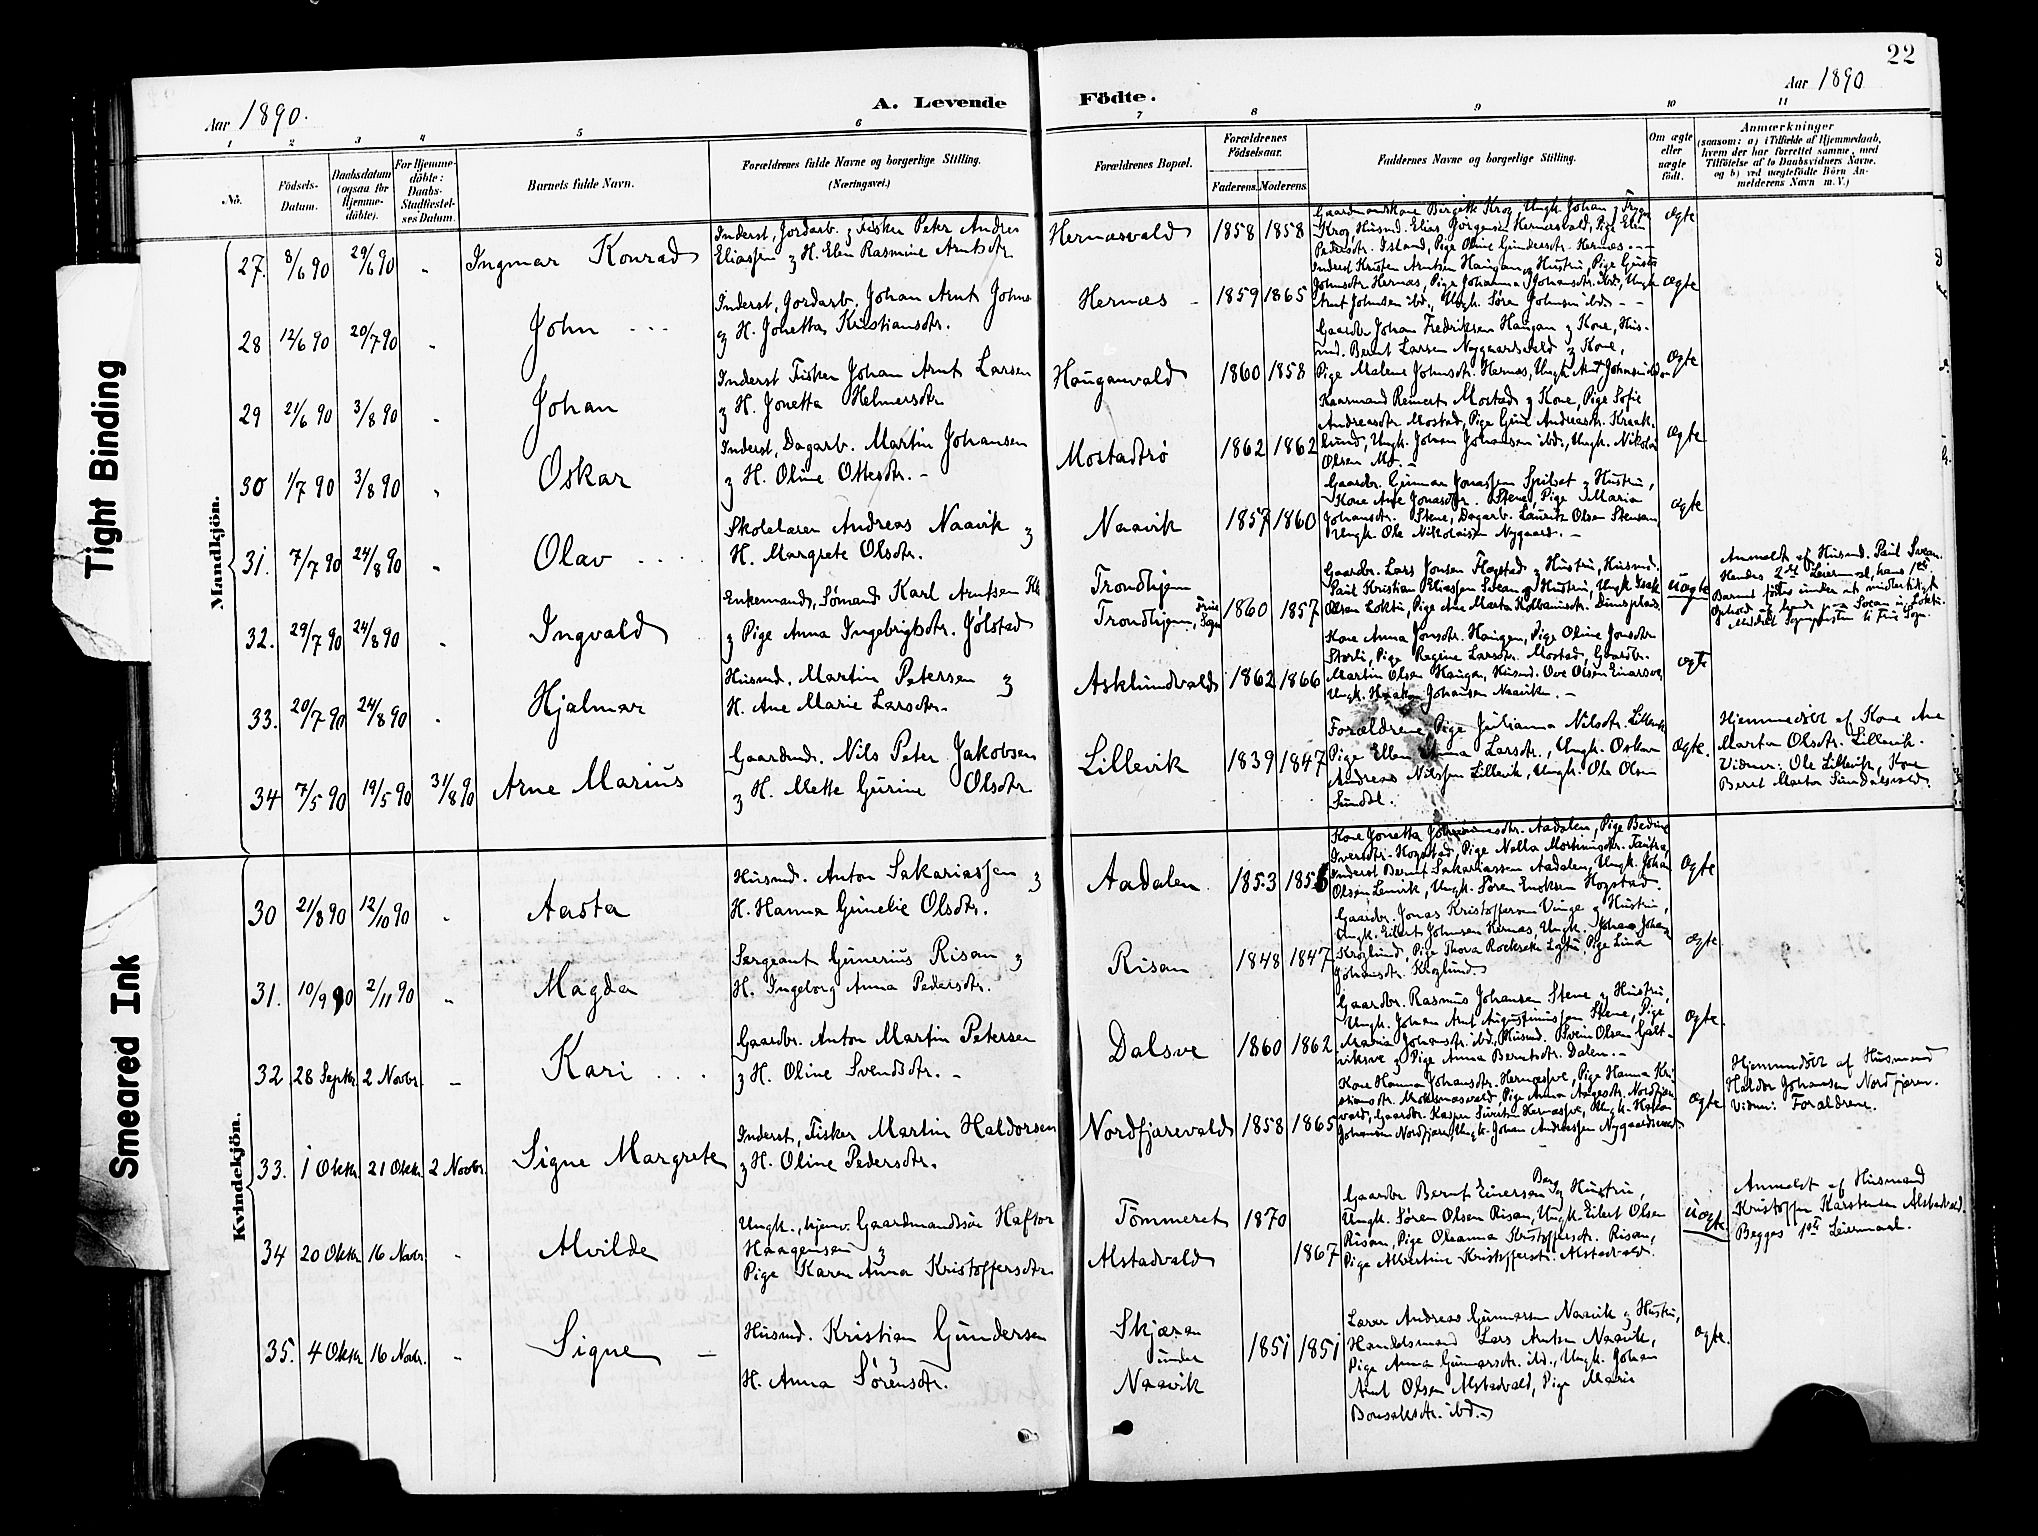 22
Aar 1890.
A. Levende
Födte.
Aar 1890
1 2 3 4 5 6 7 8 9 10 11
No.
Födsels-Datum.
Daabsdatum (ogsaa for Hjemme-döbte).
For Hjemme-döbte: Daabs-Stadfæstel-ses Datum.
Barnets fulde Navn.
Forældrenes fulde Navne og borgerlige Stilling.
(Næringsvei.)
Forældrenes Bopæl.
Forældrenes Födselsaar.
Faderens. Moderens.
Faddernes Navne og borgerlige Stilling.
Om ægte eller uægte födt.
Anmærkninger
(saasom: a) i Tilfælde af Hjemmedaab,
hvem der har forrettet samme, med
Tilföielse af to Daabsvidners Navne,
og b) ved uægtefödte Börn An-
melderens Navn m. V.)
Tight Binding
Smeared Ink
Mandkjön.
27. 8/6 90 29/6 90 " Ingmar Konrad
Inderst, Jordarb. & Fisker Peter Andreas
Eliassen & H. Elen Rasmine Arntsdtr.
Hernæsvald 1858 1858
Gaardmandskone Birgitte Krog, Ungk. Johan
Krog, Husmd. Elias Jørgensen Hernæsvald, Pige Elen
Pedersdtr. Island, Pige Oline Gundersdtr. Hernæs
ægte
28 12/6 90 20/7 90 " John
Inderst, Jordarb. Johan Arnt Johns.
& H. Jonetta Kristiansdtr.
Hernæs 1859 1865
Inderst Kristen Arntsen Haugan & Hustru, Pige
Johnsdtr. Hernæs, Pige Johanna Johnsdtr. ibd., Ungk.
Arnt Johnsen ibd., Ungk. Sören Johnsen ibd.
ægte
29 21/6 90 3/8 90 " Johan
Inderst Fisker Johan Arnt Larsen
& H. Jonetta Helmersdtr
Hauganvald 1860 1858
Gaardbr. Johan Fredriksen Haugan & Kone, Hus-
md. Bernt Larsen Nygaardsvald & Kone,
Pige Malene Johnsdtr. Hernæs, Ungk. Arnt Johnsen
ægte
30 1/7 90 3/8 90 " Oskar
Inderst, Dagarb. Martin Johansen
& H. Oline Ottesdtr.
Mostadtrø 1862 1862
Kaarmand Reinert Mostad & Kone, Pige Sofie
Andreasdtr. Mostad, Pige Andreasdtr. Kraak-
lund, Ungk. Johan Johansen ibd., Ungk. Nikolai
Olsen Mo.
ægte
31. 7/7 90 24/8 90 " Olav
Skolelærer Andreas Naavik &
H. Margrete Olsdtr.
Naavik 1857 1860
Gaardbr. Gunnar Jonassen Spilset & Hustru,
Kone Ane Jonasdtr. Stene, Pige Maria
Johansdtr. Stene, Dagarb. Lauritz Olsen Stensen
Ungk. Ole Nikolaisen Nygaard.
ægte
32. 29/7 90 24/8 90 " Ingvald
Enkemand, Sömand Karl Arntsen
& Pige Anna Ingebrigtsdtr. Jölstad
Trondhjem
Trondhjem, Frue Sogn 1860 1857
Gaardbr. Lars Jonsen Flagstad & Hustru, Husmd.
Paul Kristian Eliassen Svean & Hustru, Ungk. Isak
Olsen Loktu, Pige Ane Marta Kolbanusdtr.
uægte
Anmeldt af Husmd. Paul Svean.
Hendes 2det Leiermaal, hans 1ste
Barnet födtes under et midlertidigt
Ophold paa Svean
Meddelt Sognepresten til Frue Sogn.
33. 20/7 90 24/8 90 " Hjalmar
Husmd. Martin Petersen &
H. Ane Marie Larsdtr.
Asklundvald 1862 1866
Kone Anna Jonsdtr. Haugen, Pige Oline Jonsdtr.
Størli, Pige Regine Larsdtr. Mostad, Gaardbr.
Martin Olsen Haugen, Husmd. Ove Olsen Einarsve,
Ungk. Haakon Johansen Naavik.
ægte
34 7/5 90 19/5 90 31/8 90 Arne Marius
Gaardmd. Nils Peter Jakobsen
& H. Mette Gurine Olsdtr
Lillevik 1839 1847
Forældrene, Pige Julianna Nilsdtr. Lillevik
Pige Ellen Anna Larsdtr., Ungk. Oskar
Andreas Nilssen Lillevik, Ungk. Ole Olsen
Sundal.
ægte.
Hjemmedöbt af Kone Ane
Marta Olsdtr. Lillevik.
Vidner: Ole Lillevik, Kone
Beret Marta Sundalsvald.
Kvindekjön.
30 21/8 90 12/10 90 " Aasta
Husmd. Anton Sakariassen &
H. Hanna Gunelie Olsdtr.
Aadalen 1853 1856
Kone Jonetta Johannesdtr. Aadalen, Pige Bedine
Iversdtr. Hogstad, Pige Nella Mortinusdtr. Tautra,
Inderst Bernt Sakariassen Aadalen, Ungk. Johan
Olsen Lenvik, Ungk. Sören Enoksen Hogstad.
ægte
31. 10/9 90 2/11 90 " Magda
Sergeant Gunerius Risan &
H. Ingeborg Anna Pedersdtr.
Risan 1848 1847
Gaardbr. Jonas Kristoffersen Vinge & Hustru,
Ungk. Eilert Johnsen Hernæs, Ungk. Johan Johans
Kroglund, Pige Thova Rocksek Pige Lina
Johansdtr. Kroglund.
ægte
32 28 Septbr. 2 Novbr. " Kari
Gaardbr. Anton Martin Petersen
& H. Oline Svendsdtr.
Dalsve 1860 1862
Gaardbr. Rasmus Johansen Stene & Hustru,
Ungk. Johan Arnt Augustinussen Stene, Pige
Maria Johansdtr. ibd., Husmd. Svein Olsen Galt-
viksve & Pige Anna Berntsdtr. Dalen.
ægte.
33. 1 Oktbr. 21 Oktbr. 2 Novbr. Signe Margrete
Inderst, Fisker Martin Haldorsen
& H. Oline Pedersdtr.
Nordfjærevald 1858 1865
Kone Hanna Johansdtr. Hernæsve, Pige Hanna Kri
stiansdtr. Moksnesvald, Pige Anna Aagesdtr. Nordfjære
vald, Gaardbr. Kasper Sivertsen Hernæsve, Ungk. Haldor
Johansen Nordfjære, Ungk. Johan Andreassen Nygaardsvald
ægte
Hjemmedöbt af Husmand
Haldor Johansen Nordfjæren.
Vidner: Forældrene.
34 20 Oktbr. 16 Novbr. " Alvilde
Ungk., hjemv. Gaardmandssön Haftor
Haagensen &
Pige Karen Anna Kristoffersdtr.
Tömmeret 1870
Alstadvald 1867
Gaardbr Bernt Einersen Berg & Hustru,
Ungk. Sören Olsen Risan, Ungk. Eilert Olsen
Risan, Pige Oleanna Kristoffersdtr. Risan,
Pige Albertine Kristoffersdtr. Alstadvald.
uægte
Anmeldt af Husmand
Kristoffer Karstensen Alstadvald.
Begges 1ste Leiermaal.
35. 4 Oktbr. 16 Novbr. " Signe
Husmd. Kristian Gundersen
&
H. Anna Sörensdtr.
Skjæran
under
Naavik 1851 1851
Lærer Andreas Gunnarsen Naavik & Hustru,
Handelsmand Lars Arntsen Naavik,
Pige Anna Gunnarsdtr. ibd., Ungk. Johan
Arnt Olsen Alstadvald, Pige Marie
Bonsaksdtr. ibd.
ægte.